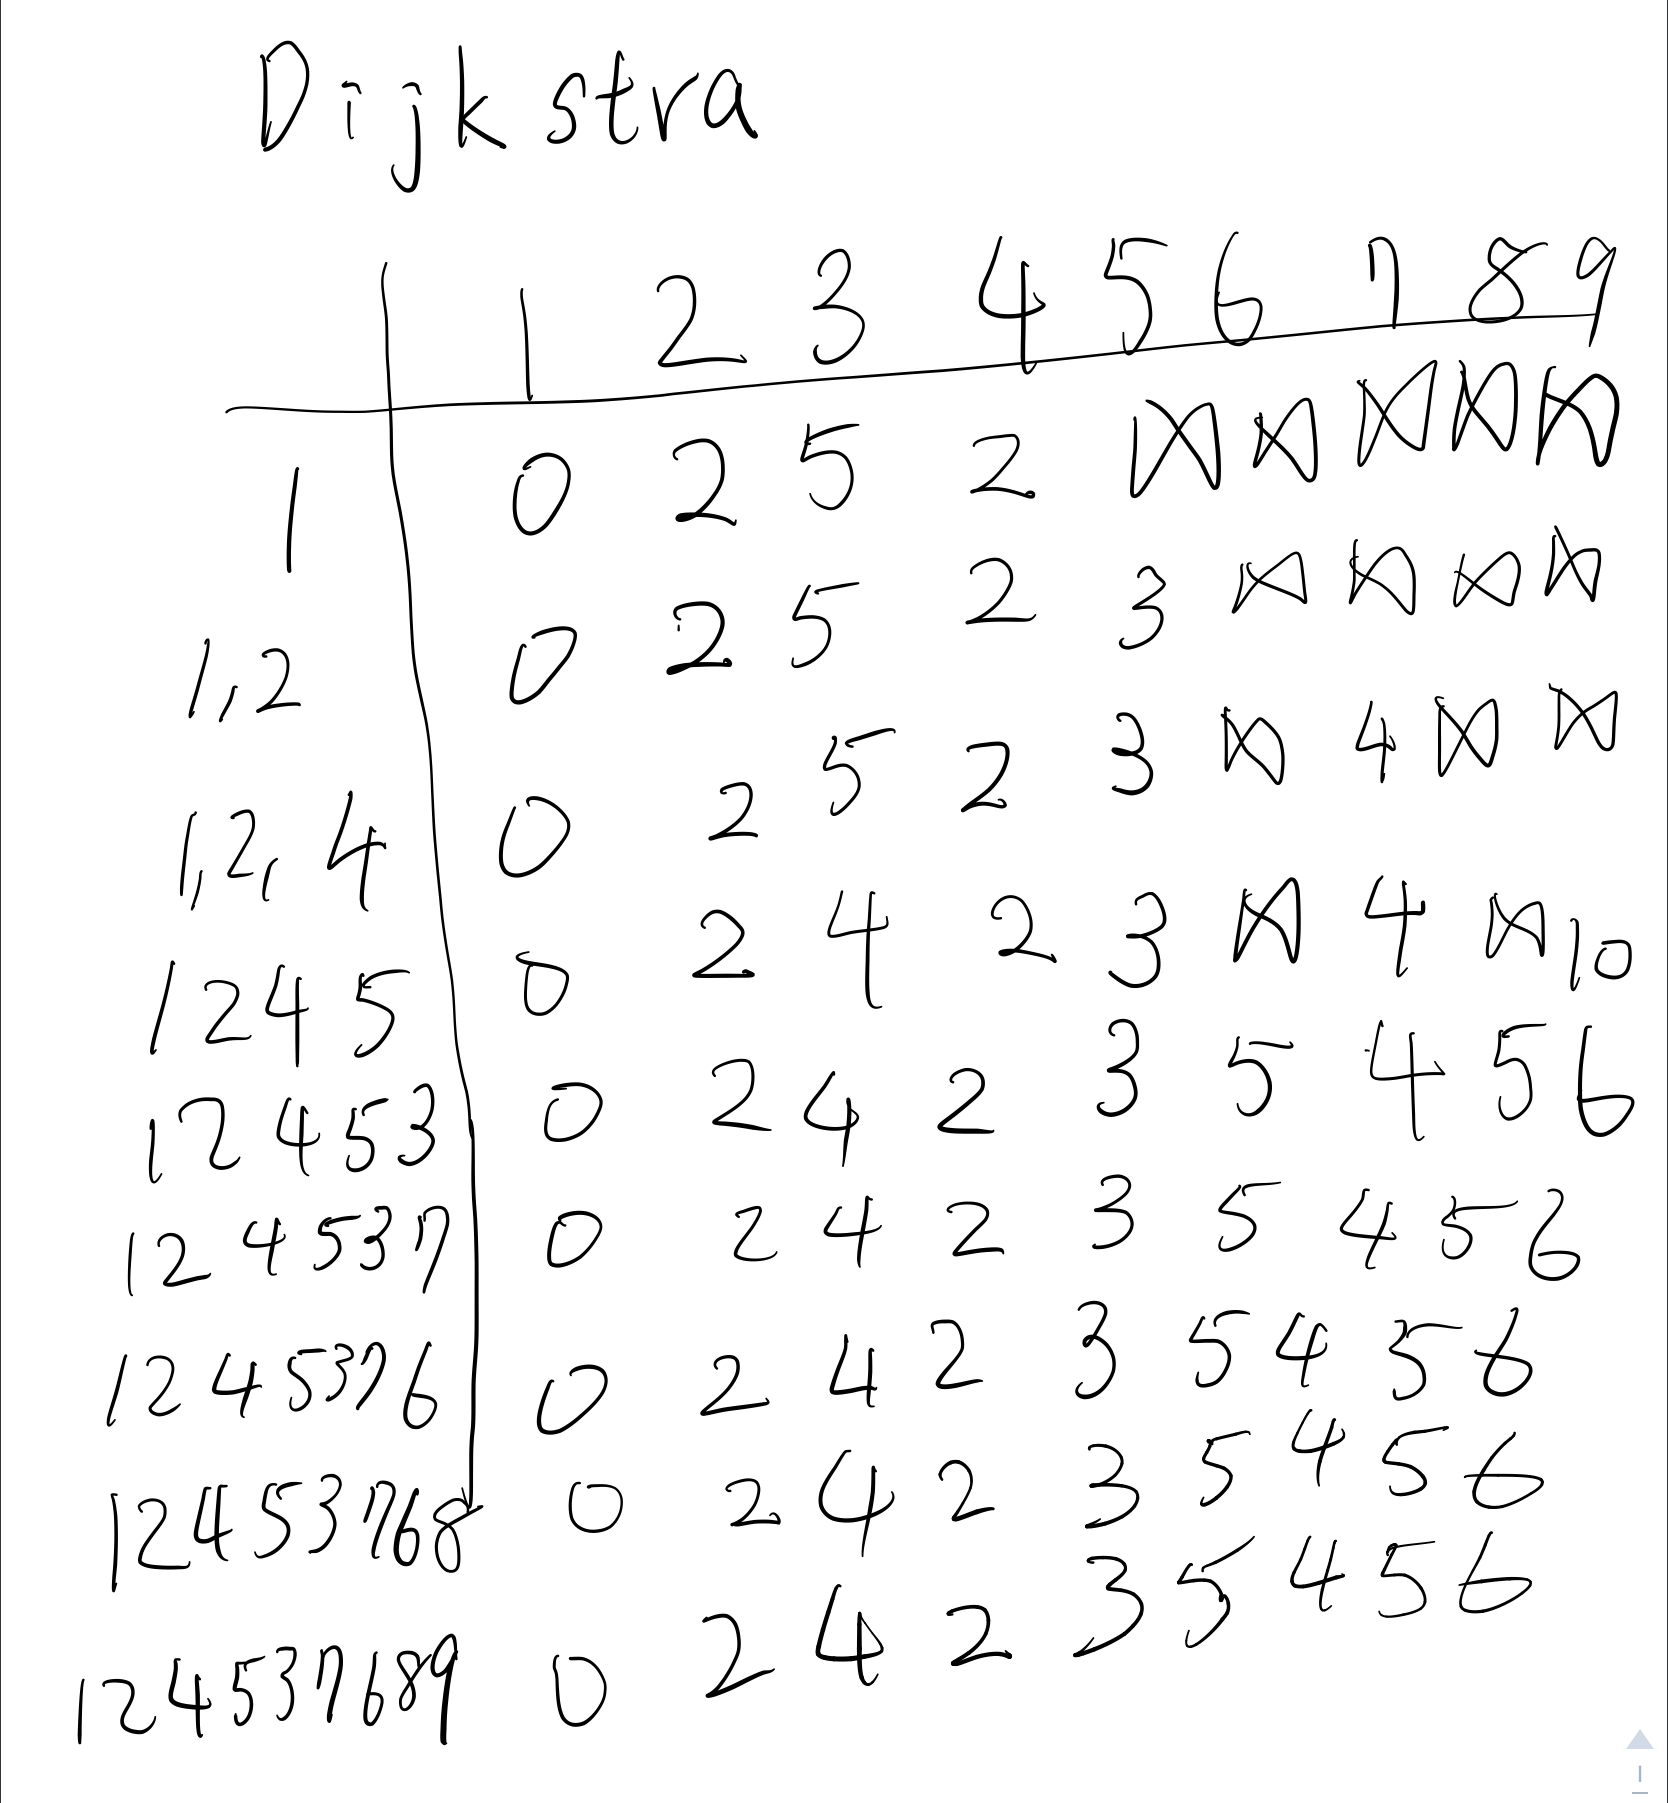 Dijkstra
1 2 3 4 5 6 7 8 9
1 0 2 5 2 ∞ ∞ ∞ ∞ ∞
1,2 0 2 5 2 3 ∞ ∞ ∞ ∞
1,2,4 0 2 5 2 3 ∞ 4 ∞ ∞
1245 0 2 4 2 3 ∞ 4 ∞ 10
12453 0 2 4 2 3 5 4 5 6
124537 0 2 4 2 3 5 4 5 6
1245376 0 2 4 2 3 5 4 5 6
12453768 0 2 4 2 3 5 4 5 6
124537689 0 2 4 2 3 5 4 5 6